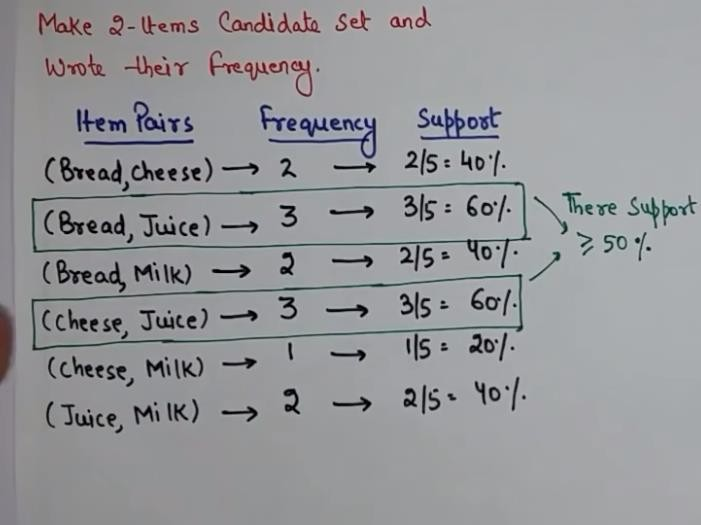 Make 2-Items Candidate Set and
Wrote their Frequency.
Item Pairs Frequency Support
(Bread, Cheese) → 2 → 2/5 = 40%
(Bread, Juice) → 3 → 3/5 = 60%
(Bread, Milk) → 2 → 2/5 = 40%
(Cheese, Juice) → 3 → 3/5 = 60%
(Cheese, Milk) → 1 → 1/5 = 20%
(Juice, Milk) → 2 → 2/5 = 40%
There Support
≥ 50%